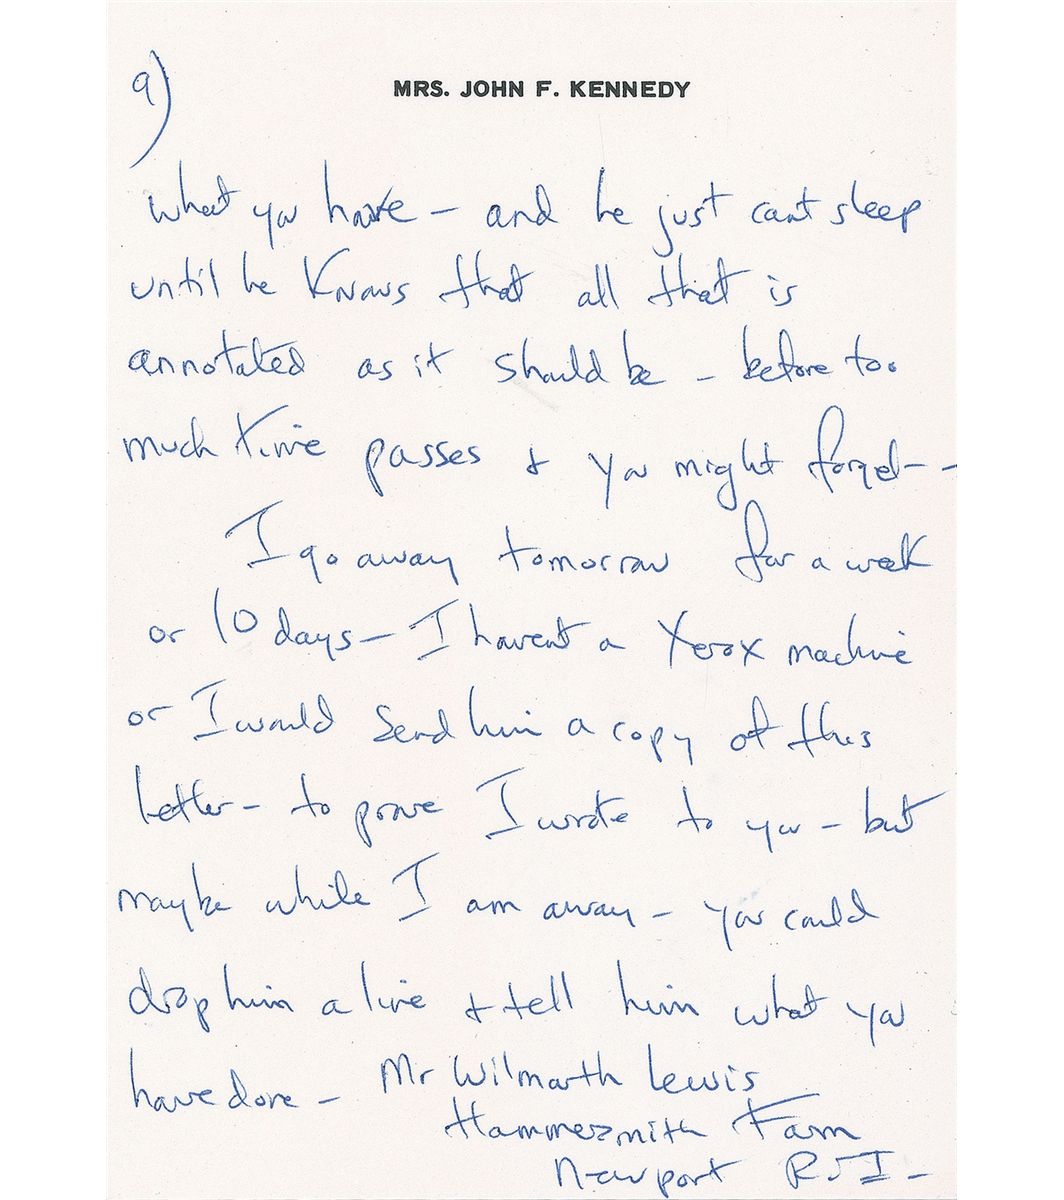 9)
MRS. JOHN F. KENNEDY
what you have – and he just cant sleep
until he knows that all that is
annotated as it should be – before too
much time passes + you might forget – –
I go away tomorrow for a week
or 10 days – I havent a Xerox machine
or I would send him a copy of this
letter – to prove I wrote to you – but
maybe while I am away – you could
drop him a line + tell him what you
have done – Mr Wilmarth Lewis
Hammersmith Farm
Newport R.I –